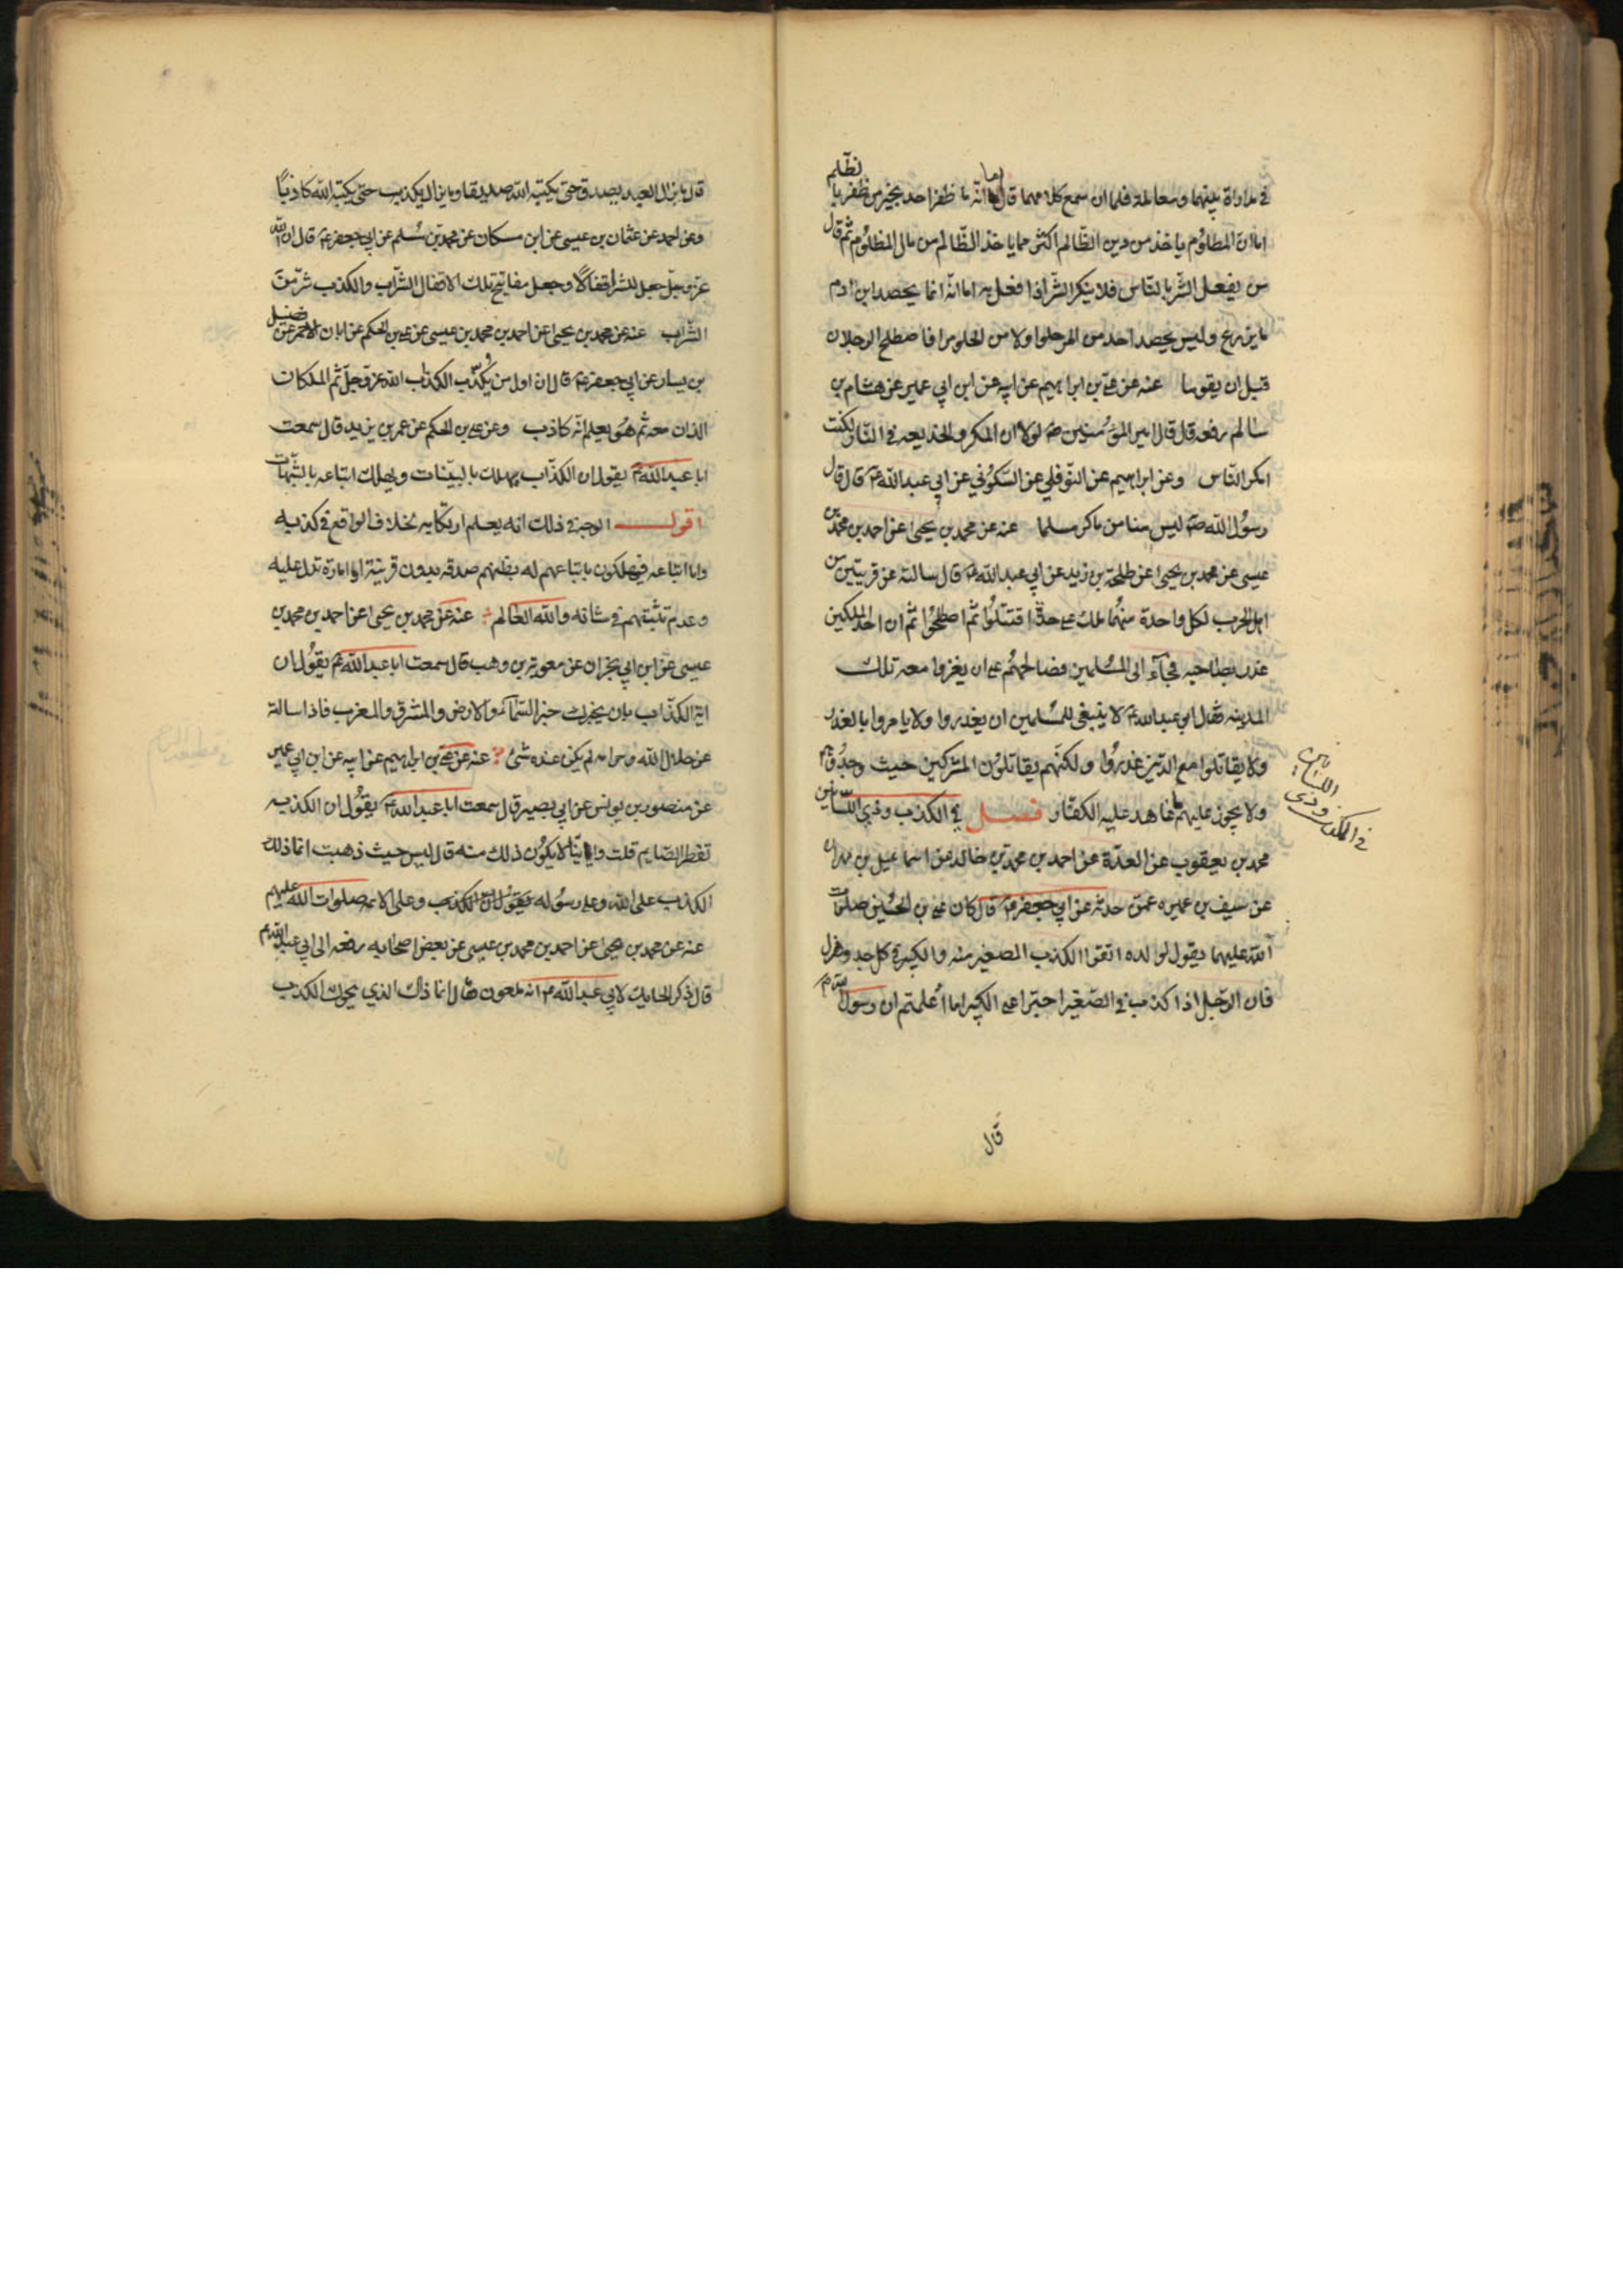 في مداراة بينهما ومعاملة فلما ان سمع كلامهما قال اما انه ما ظفر احد بخير من ظفر با
لظلم
اما ان المظلوم ياخذ من دين الظالم اكثر مما ياخذ الظالم من مال المظلوم ثم قال
من يفعل الشر بالناس فلا ينكر الشر اذا فعل به اما انه انما يحصد ابن ادم
ما يزرع وليس يحصد احد من المر حلوا ولا من الحلو مرا فاصطلح الرجلان
قبل ان يقوما عنه عن علي بن ابراهيم عن ابيه عن ابن ابي عمير عن هشام بن
سالم رفعه قال قال امير المؤمنين لولا ان المكر والخديعة في النار لكنت
امكر الناس وعن ابراهيم عن النوفلي عن السكوني عن ابي عبدالله ع قال قال
رسول الله ص ليس منا من ماكر مسلما عنه عن محمد بن يحيى عن احمد بن محمد بن
عيسى عن محمد بن يحيى عن طلحة بن زيد عن ابي عبدالله ع قال سالته عن قريتين من
اهل الحرب لكل واحدة منهما ملك على حدة اقتتلوا ثم اصطلحوا ثم ان احد الملكين
غدر بصاحبه فجاء الى المسلمين فصالحهم على ان يغزوا معه تلك
المدينه فقال ابو عبدالله ع لا ينبغي للمسلمين ان يغدروا ولا يامروا بالغدر
ولا يقاتلوا مع الذين غدروا ولكنهم يقاتلون المشركين حيث وجدوهم
ولا يجوز عليهم ما عاهد عليه الكفار فصل في الكذب وذي اللسانين
في الكذب وذي اللسانين
محمد بن يعقوب عن العدة عن احمد بن محمد بن خالد عن اسماعيل بن مهران
عن سيف بن عميره عمن حدثه عن ابي جعفر ع قال كان علي بن الحسين صلوات
الله عليهما يقول لولده اتقوا الكذب الصغير منه والكبير في كل جد وهزل
فان الرجل اذا كذب في الصغير اجترا على الكبير اما علمتم ان رسول الله ص
قال
قال ما يزال العبد يصدق حتى يكتبه الله صديقا وما يزال يكذب حتى يكتبه الله كاذبا
وعن احمد عن عثمان بن عيسى عن ابن مسكان عن محمد بن مسلم عن ابي جعفر ع قال ان الله
عز وجل جعل للشر اقفالا وجعل مفاتيح تلك الاقفال الشراب والكذب شر من
الشراب عنه عن محمد بن يحيى عن احمد بن محمد بن عيسى عن علي بن الحكم عن ابان الاحمر عن فضيل
بن يسار عن ابي جعفر ع قال ان اول من يكذب الكذاب الله عز وجل ثم الملكان
الذان معه ثم هو يعلم انه كاذب وعن علي بن الحكم عن عمر بن يزيد قال سمعت
ابا عبدالله ع يقول ان الكذاب يهلك بالبينات ويهلك اتباعه بالشبهات
اقول الوجه في ذلك انه يعلم ارتكابه بخلاف الواقع في كذبه
واما اتباعه فيهلكون باتباعهم له بظنهم صدقه بدون قرينة او امارة تدل عليه
وعدم تثبتهم في شانه والله العالم عنه عن محمد بن يحيى عن احمد بن محمد بن
عيسى عن ابن ابي نجران عن معوية بن وهب قال سمعت ابا عبدالله ع يقول ان
اية الكذاب بان يخبرك خبر السماء والارض والمشرق والمغرب فاذا سالته
عن حلال الله وحرامه لم يكن عنده شئ عنه عن علي بن ابراهيم عن ابيه عن ابن ابي عمير
عن منصور بن يونس عن ابي بصير قال سمعت ابا عبدالله ع يقول ان الكذبه
تفطر الصايم قلت واينا لا يكون ذلك منه قال ليس حيث ذهبت انما ذلك
الكذب على الله وعلى رسوله وعلى الائمه صلوات الله عليهم
عنه عن محمد بن يحيى عن احمد بن محمد بن عيسى عن بعض اصحابه رفعه الى ابي عبد الله ع
قال ذكر الحايك لابي عبدالله ع انه ملعون فقال انما ذاك الذي يحوك الكذب